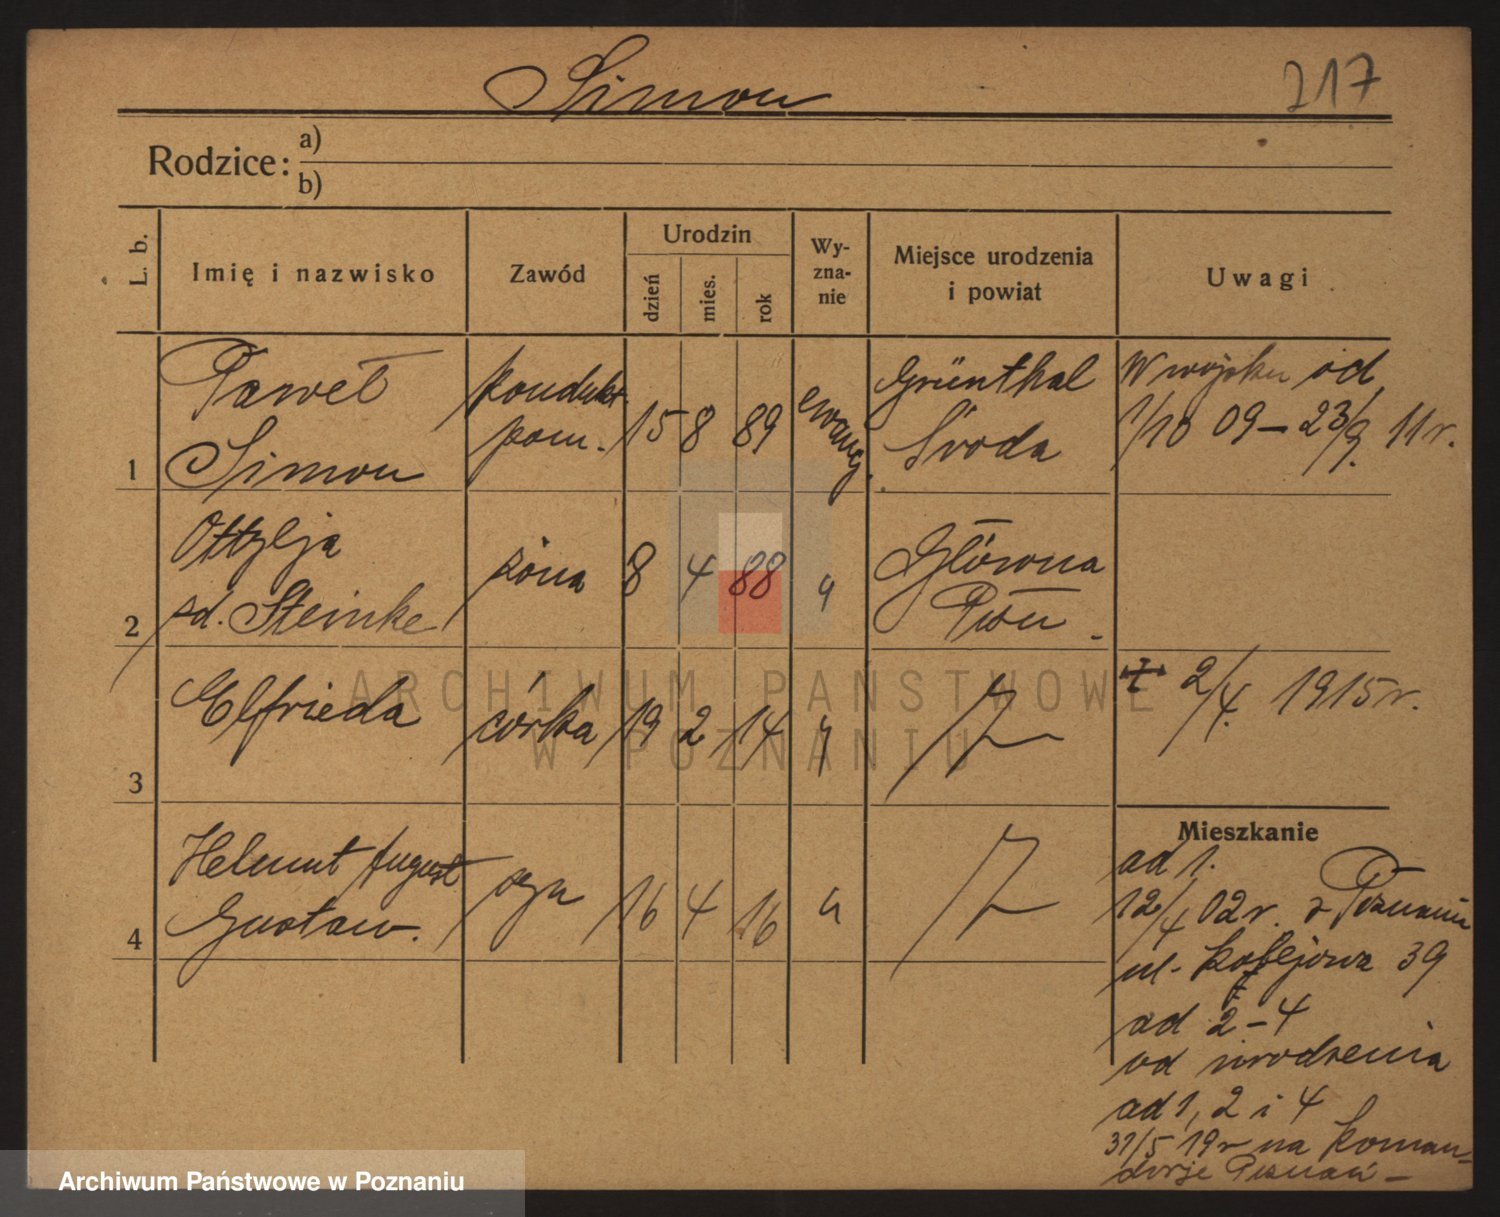 Simon
217
Rodzice:
a)
b)
L. b.
Imię i nazwisko
Zawód
Urodzin
dzień
mies.
rok
Wy-
zna-
nie
Miejsce urodzenia
i powiat
Uwagi
1
Paweł
Simon
kondukt.
pom.
15
8
89
ewang.
Grünthal
Środa
W wojsku od
1/10 09 – 23/9. 11 r.
2
Ottylja
zd. Steinke
żona
8
4
88
"
Główna
Pozn.
3
Elfrieda
córka
19
2
14
"
† 2/4. 1915 r.
4
Helmut August
Gustaw.
syn
16
4
16
"
Mieszkanie
ad 1.
12/4 02 r. z Poznania
ul. Kolejowa 39
ad 2 – 4
od urodzenia
ad 1, 2 i 4
31/5 19 r na Koman-
dorje Poznań –
ARCHIWUM PAŃSTWOWE
W POZNANIU
Archiwum Państwowe w Poznaniu